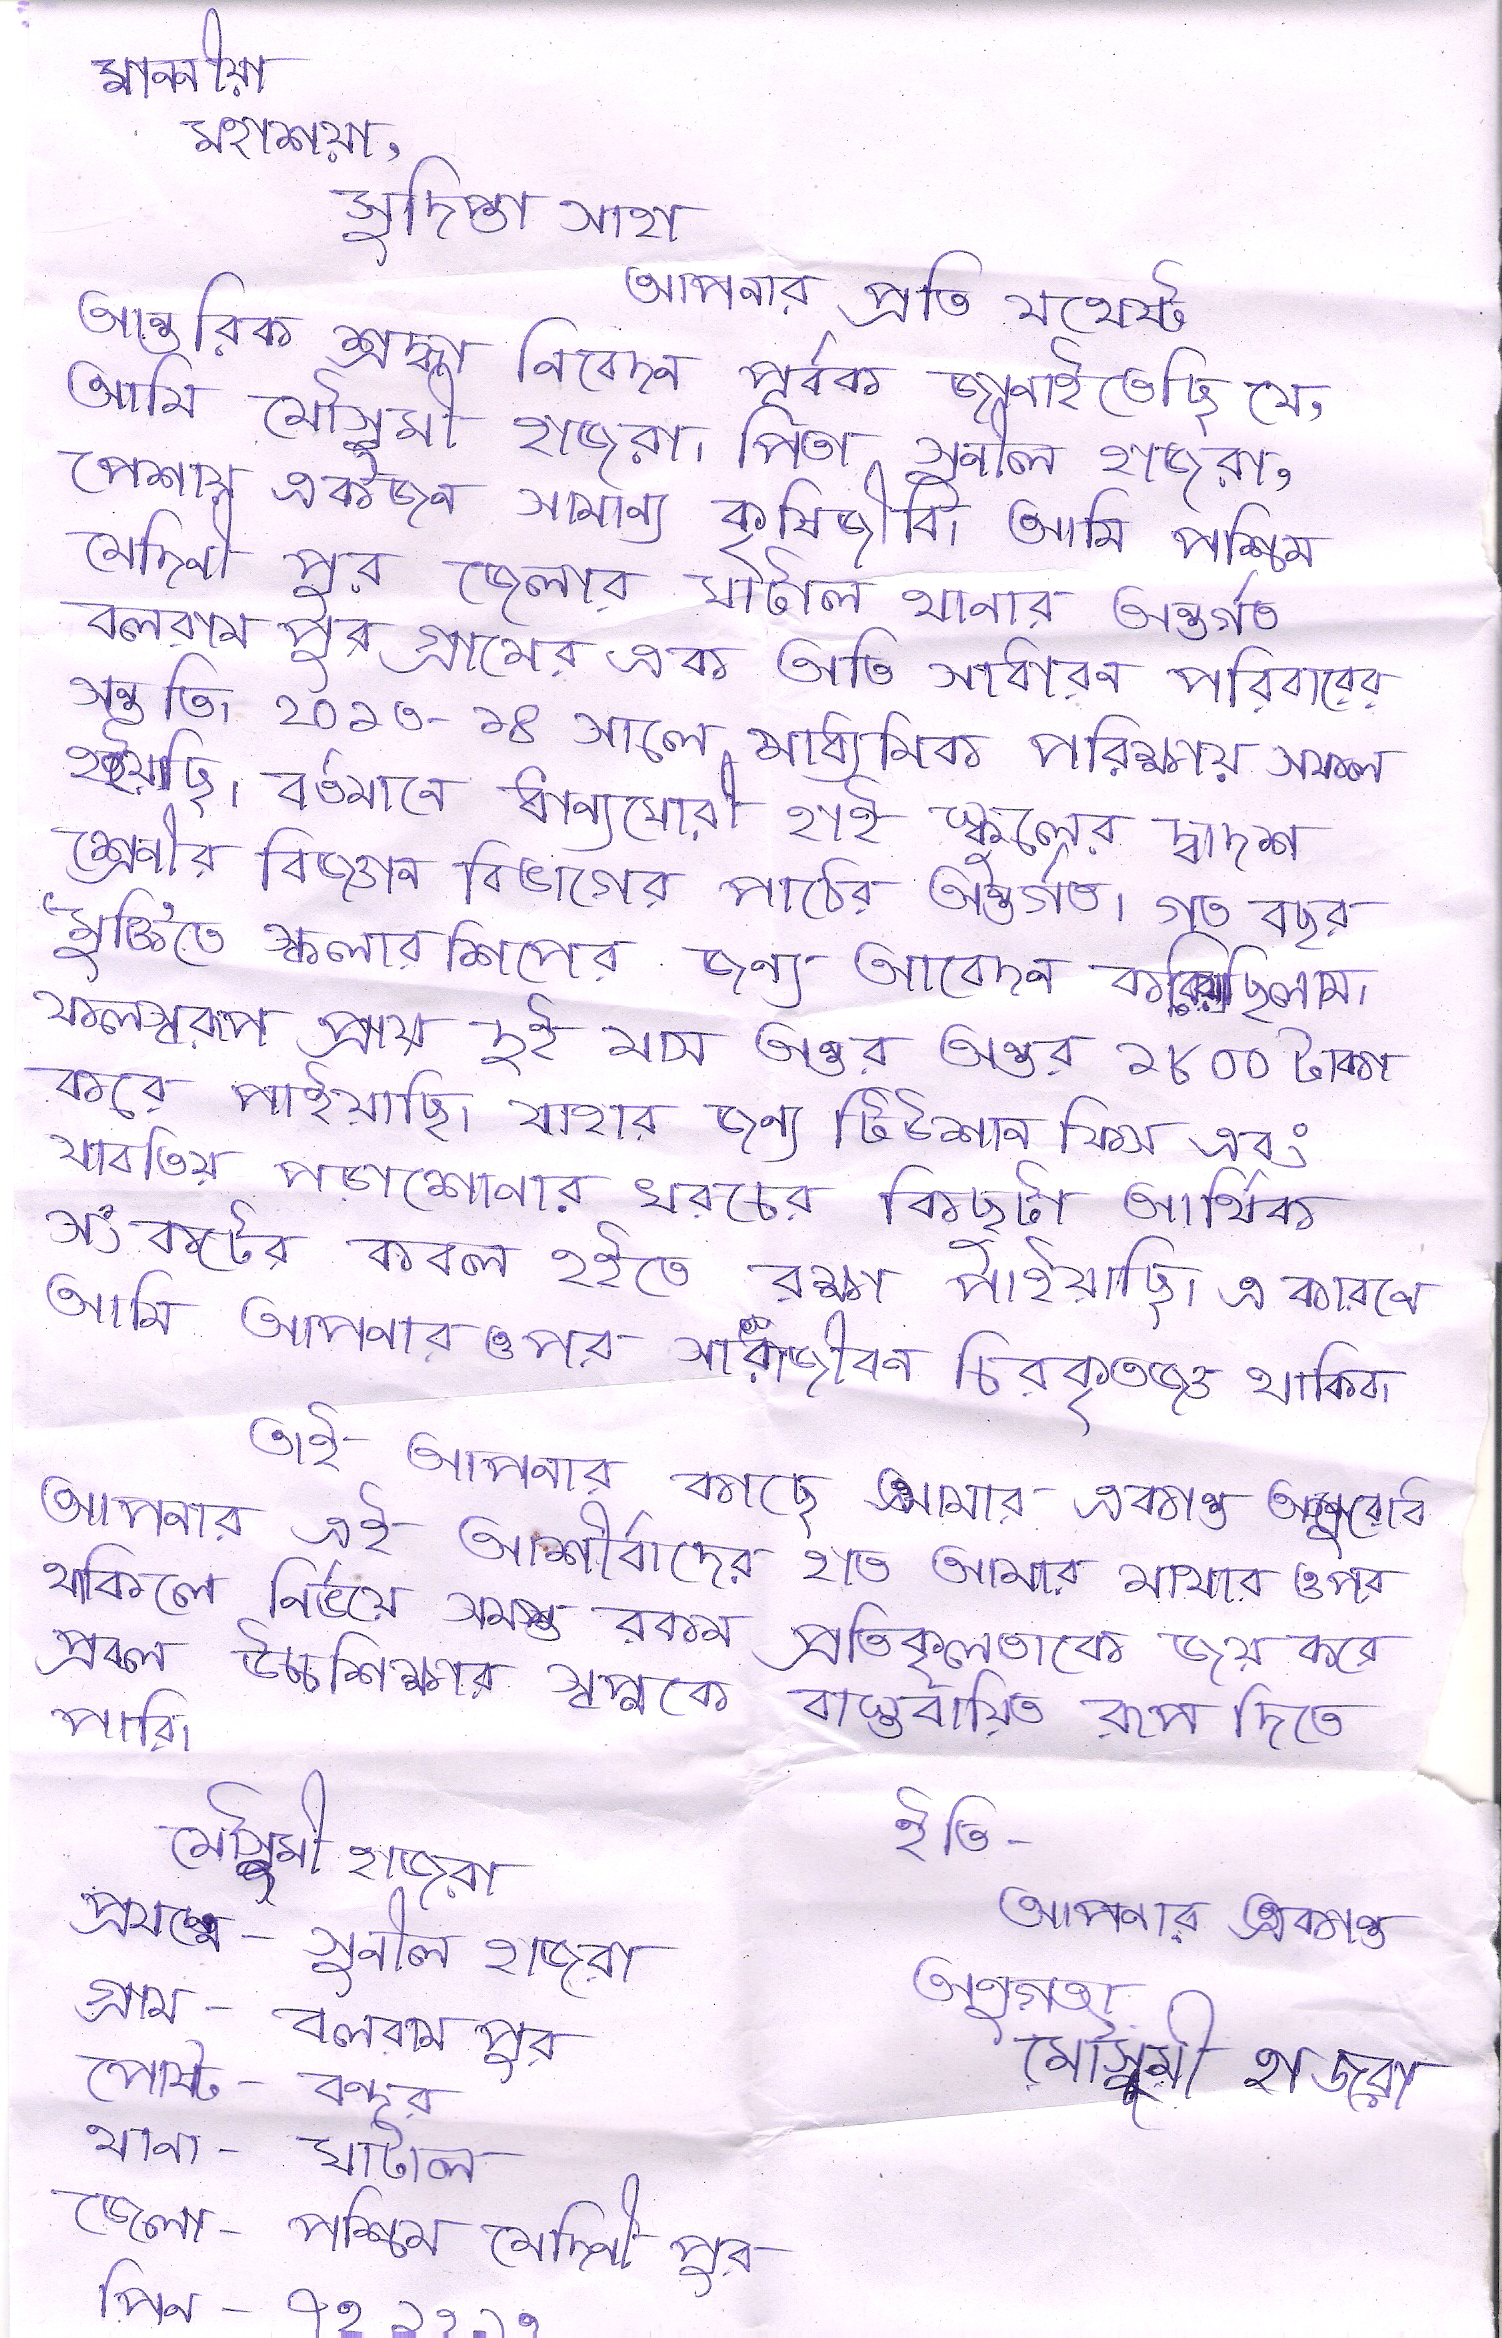 মাননীয়া
মহাশয়া,
সুদিপ্তা সাহা
আপনার প্রতি যথেষ্ট
আন্তরিক শ্রদ্ধা নিবেদন পূর্বক জানাইতেছি যে,
আমি মৌসুমী হাজরা। পিতা সুনীল হাজরা,
পেশায় একজন সামান্য কৃষিজীবি। আমি পশ্চিম
মেদিনী পুর জেলার ঘাটাল থানার অন্তর্গত
বলরাম পুর গ্রামের এক অতি সাধারন পরিবারের
সন্ততি। ২০১৩-১৪ সালে মাধ্যমিক পরিক্ষায় সফল
হইয়াছি। বর্তমানে ধান্যঘোরী হাই স্কুলের দ্বাদশ
শ্রেনীর বিজ্ঞান বিভাগের পাঠের অন্তর্গত। গত বছর
'মুক্তি'তে স্কলারশিপের জন্য আবেদন করিয়াছিলাম।
ফলস্বরূপ প্রায় দুই মাস অন্তর অন্তর ১৮০০ টাকা
করে পাইয়াছি। যাহার জন্য টিউশান ফিস এবং
যাবতিয় পড়াশোনার খরচের কিছুটা আর্থিক
সংকটের কবল হইতে রক্ষা পাইয়াছি। এ কারণে
আমি আপনার ওপর সারাজীবন চিরকৃতজ্ঞ থাকিব।
তাই আপনার কাছে আমার একান্ত অনুরোধ
আপনার এই আশীর্বাদের হাত আমার মাথার ওপর
থাকিলে নির্ভয়ে সমস্ত রকম প্রতিকূলতাকে জয় করে
প্রবল উচ্চশিক্ষার স্বপ্নকে বাস্তবায়িত রূপ দিতে
পারি।
মৌসুমী হাজরা
প্রযত্নে - সুনীল হাজরা
গ্রাম - বলরাম পুর
পোষ্ট - বন্দর
থানা - ঘাটাল
জেলা - পশ্চিম মেদিনী পুর
পিন -
ইতি -
আপনার একান্ত
অনুগতা
মৌসুমী হাজরা